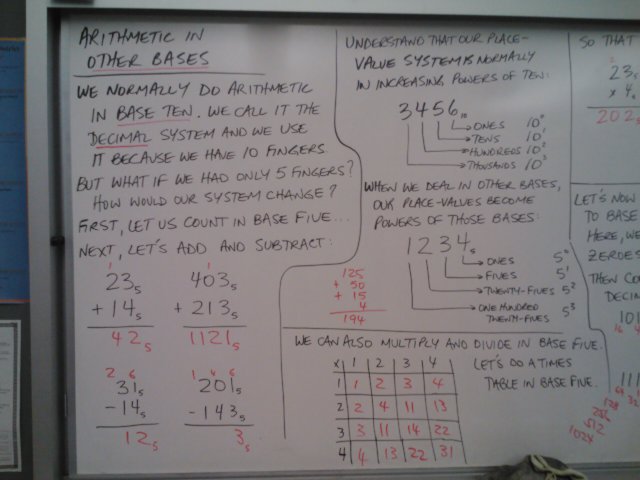 ARITHMETIC IN
OTHER BASES
WE NORMALLY DO ARITHMETIC
IN BASE TEN. WE CALL IT THE
DECIMAL SYSTEM AND WE USE
IT BECAUSE WE HAVE 10 FINGERS
BUT WHAT IF WE HAD ONLY 5 FINGERS?
HOW WOULD OUR SYSTEM CHANGE?
FIRST, LET US COUNT IN BASE FIVE...
NEXT, LET'S ADD AND SUBTRACT:
1
23₅
+ 14₅
42₅
1
403₅
+ 213₅
1121₅
2 6
31₅
-14₅
12₅
1 4 6
201₅
-143₅
3₅
UNDERSTAND THAT OUR PLACE-
VALUE SYSTEM IS NORMALLY
IN INCREASING POWERS OF TEN:
3456₁₀
ONES 10⁰
TENS 10¹
HUNDREDS 10²
THOUSANDS 10³
WHEN WE DEAL IN OTHER BASES,
OUR PLACE-VALUES BECOME
POWERS OF THOSE BASES:
1234₅
ONES 5⁰
FIVES 5¹
TWENTY-FIVES 5²
ONE HUNDRED
TWENTY-FIVES 5³
125
+ 50
+ 15
4
194
WE CAN ALSO MULTIPLY AND DIVIDE IN BASE FIVE.
LET'S DO A TIMES
TABLE IN BASE FIVE.
X 1 2 3 4
1 1 2 3 4
2 2 4 11 13
3 3 11 14 22
4 4 13 22 31
SO THAT
2
23₅
x 4₅
202₅
LET'S NOW
TO BASE
HERE, WE
ZEROES
THEN CO
DECI
101
16
111
32
64
128
256
512
1024